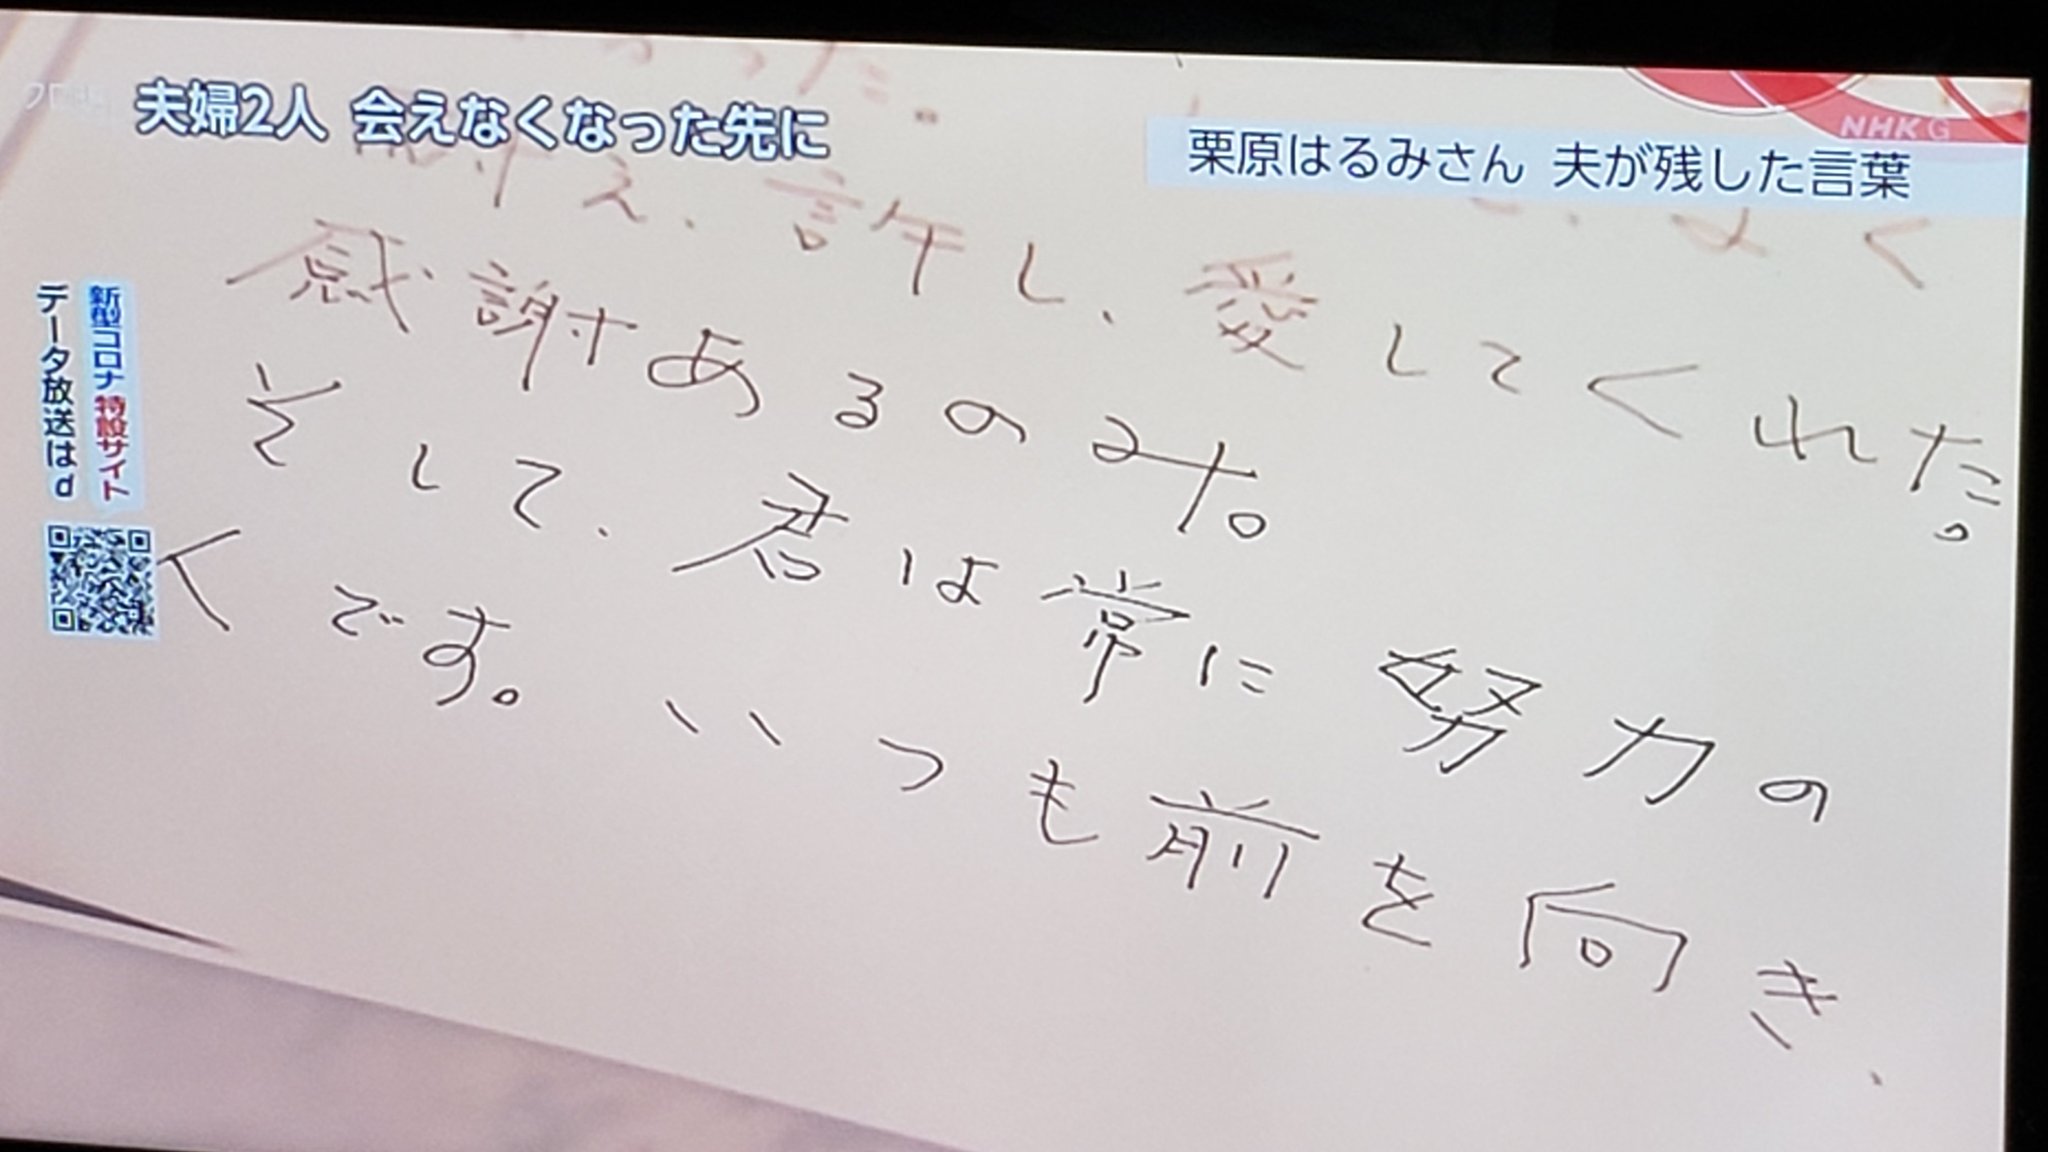 夫婦2人 会えなくなった先に
栗原はるみさん 夫が残した言葉
NHK G
新型コロナ 特設サイト
データ放送はd
った。
よく
耐え、許し、愛してくれた。
感謝あるのみ。
そして、君は常に努力の
人です。いつも前を向き、